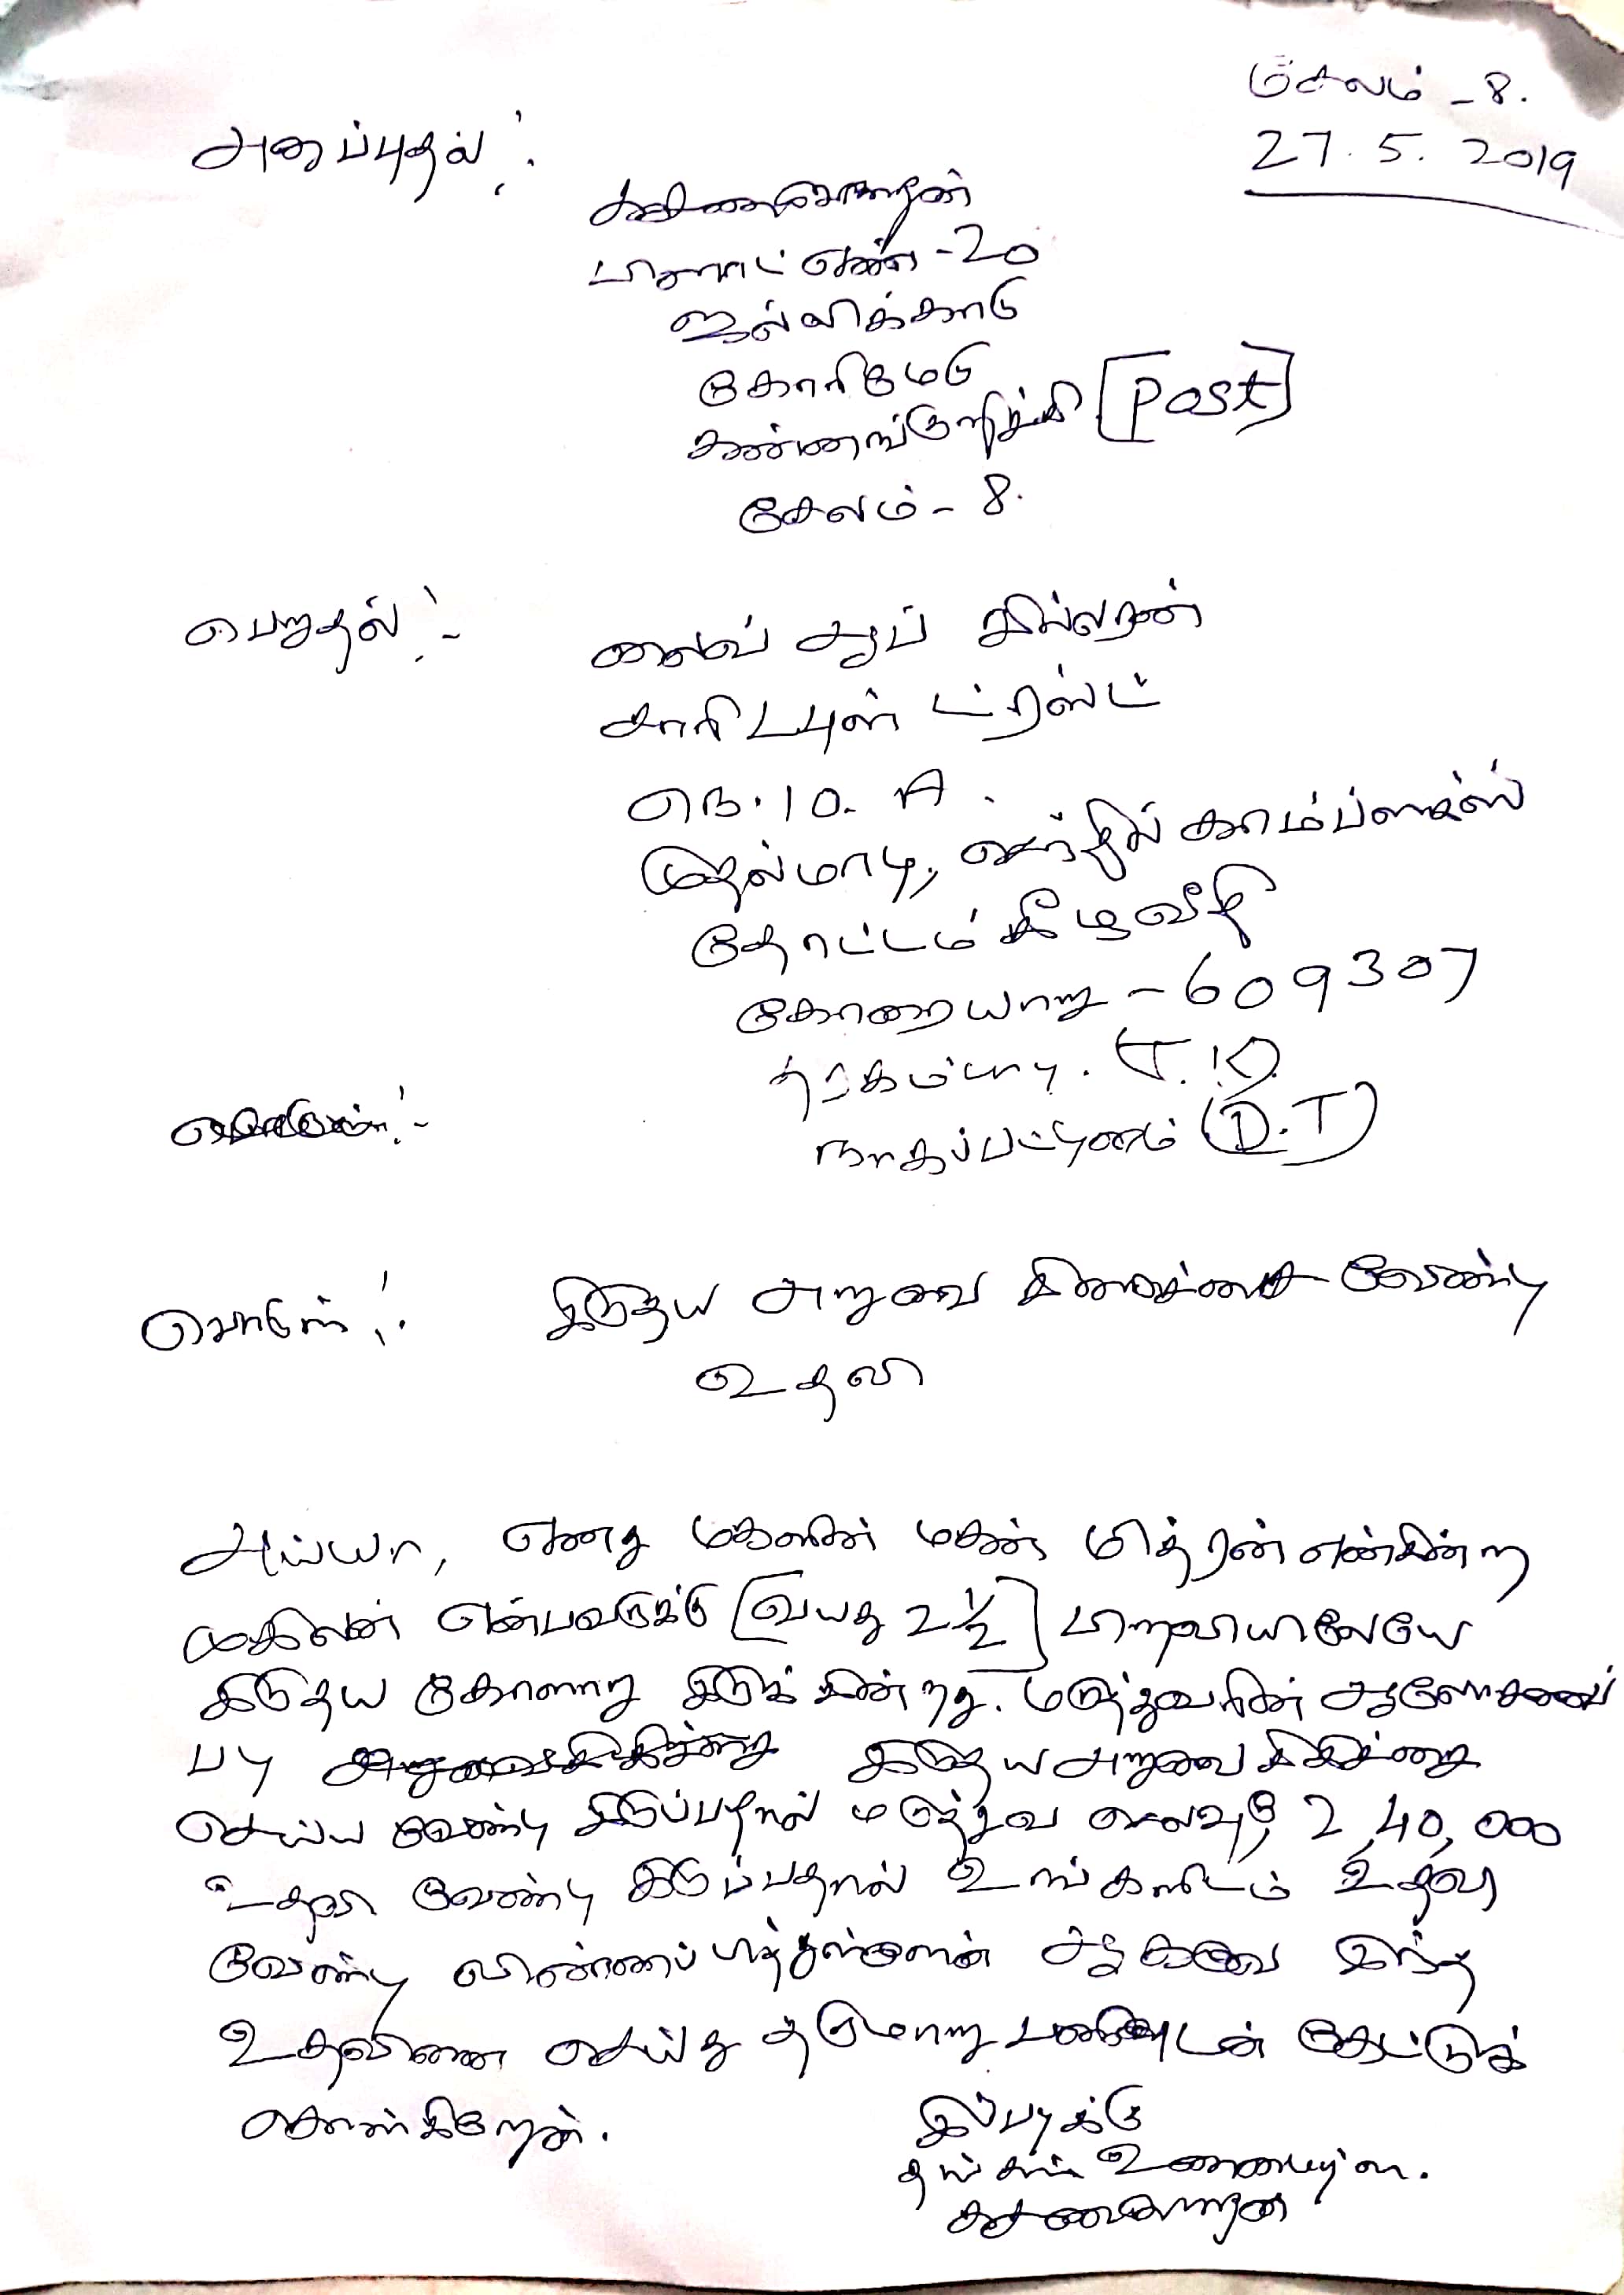 சேலம் - 8.
27.5.2019
அனுப்புதல் :-
பிளாட் எண் - 20
ஜல்லிக்காடு
கோரிமேடு
கண்ணங்குறிச்சி [Post]
சேலம் - 8.
பெறுதல் :-
லைவ் ஆப் சில்ரன்
சாரிடபுள் ட்ரஸ்ட்
நெ. 10. A.
முதல்மாடி, செந்தில் காம்ப்ளக்ஸ்
தோட்டம் கீழவீதி
கோறையாறு - 609307
தரகம்பாடி. T.K
நாகப்பட்டினம் (D.T)
பொருள் :-
இருதய அறுவை சிகைச்சை வேண்டி
உதவி
அய்யா, எனது மகளின் மகன் மித்ரன் என்கின்ற
முகிலன் என்பவருக்கு [வயது 2 1/2] பிறவியாலேயே
இருதய கோளாறு இருக்கின்றது. மருத்துவரின் ஆலோசனைப்
படி இருதய அறுவை சிகிச்சை
செய்ய வேண்டி இருப்பதால் மருத்துவ செலவு ரூ 2,40,000
உதவி வேண்டி இருப்பதால் உங்களிடம் உதவி
வேண்டி விண்ணப்பித்துள்ளேன் ஆகவே இந்த
உதவினை செய்து தருமாறு பணிவுடன் கேட்டுக்
கொள்கிறேன்.
இப்படிக்கு
தங்கள் உண்மையுள்ள.